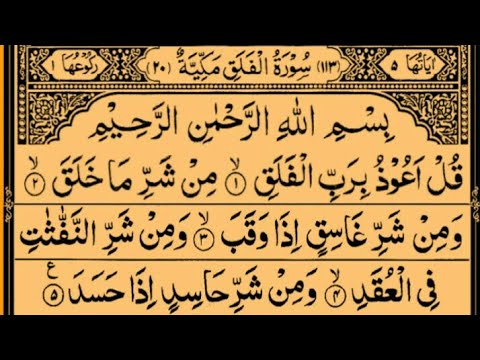 اٰیَاتُهَا ۵ (۱۱۳) سُوْرَةُ الْفَلَقِ مَكِّیَّةٌ (۲۰) رُكُوْعُهَا ۱
بِسْمِ اللهِ الرَّحْمٰنِ الرَّحِیْمِ
قُلْ اَعُوْذُ بِرَبِّ الْفَلَقِ ۙ﴿۱﴾ مِنْ شَرِّ مَا خَلَقَ ۙ﴿۲﴾
وَمِنْ شَرِّ غَاسِقٍ اِذَا وَقَبَ ۙ﴿۳﴾ وَمِنْ شَرِّ النَّفّٰثٰتِ
فِی الْعُقَدِ ۙ﴿۴﴾ وَمِنْ شَرِّ حَاسِدٍ اِذَا حَسَدَ ﴿۵﴾ ع